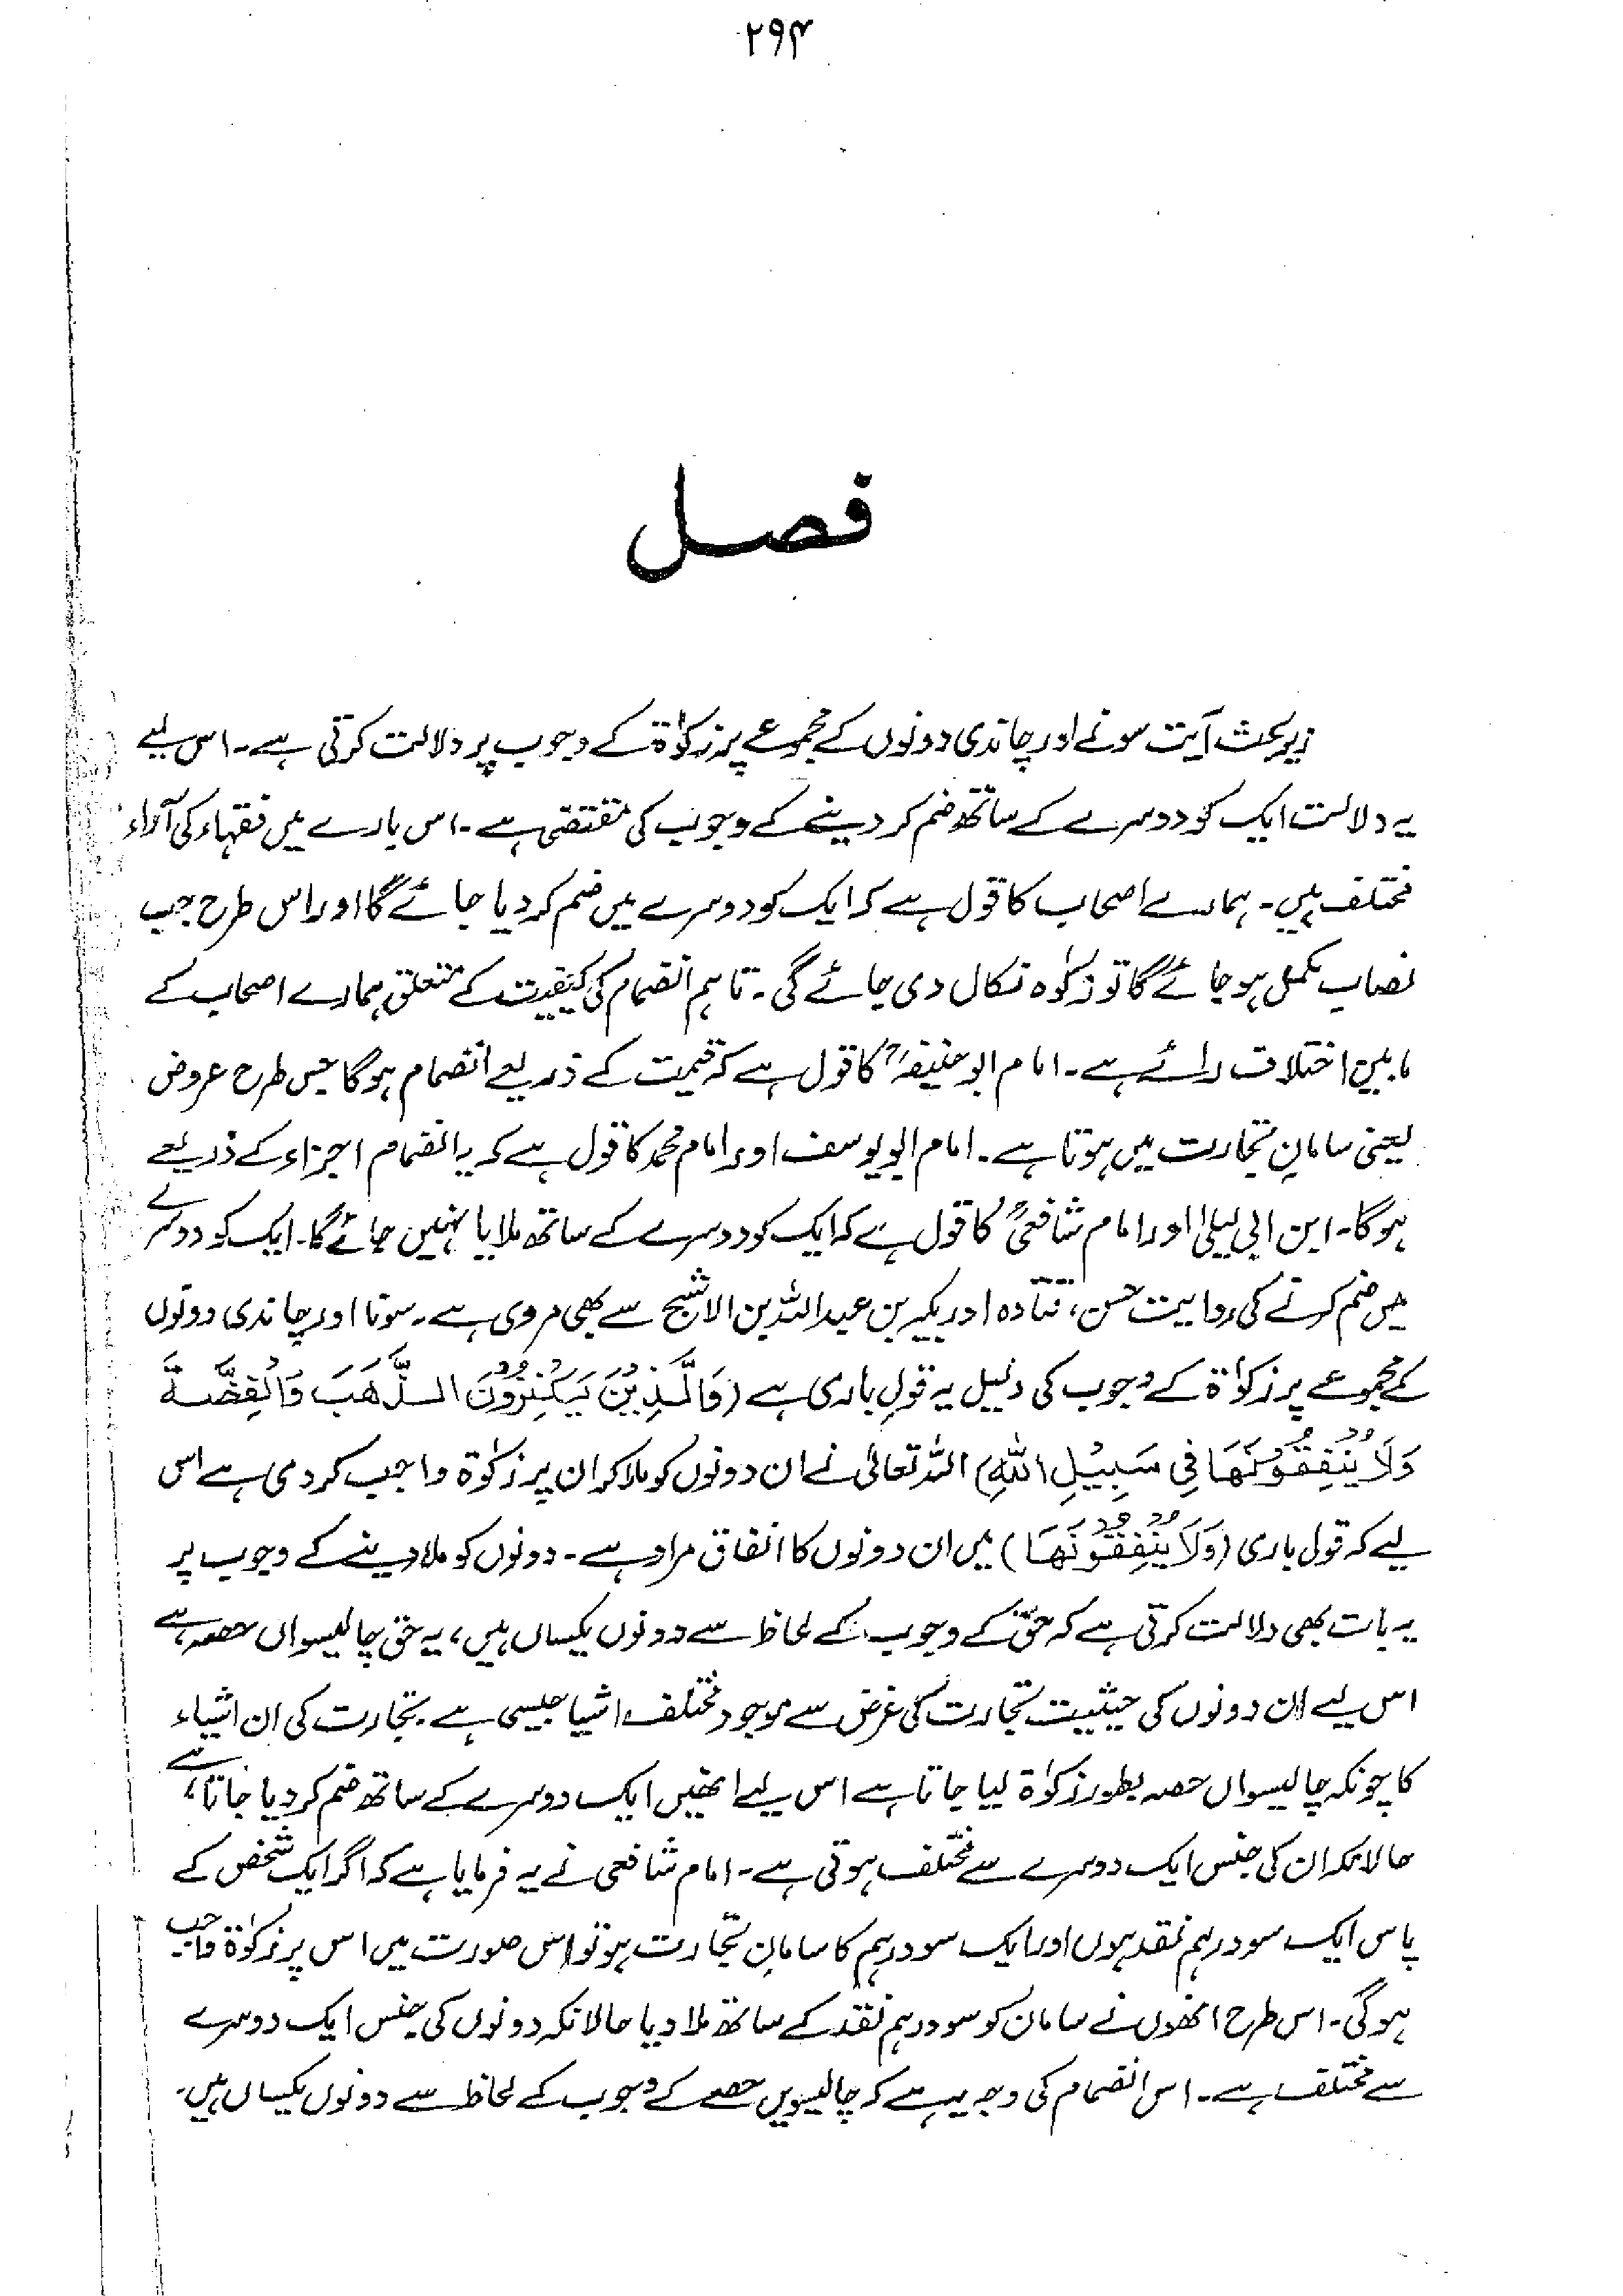 ۲۹۴
فصل
زیر بحث آیت سونے اور چاندی دونوں کے مجموعے پر زکوٰۃ کے وجوب پر دلالت کرتی ہے۔ اس لیے
یہ دلالت ایک کو دوسرے کے ساتھ ضم کر دینے کے وجوب کی مقتضی ہے۔ اس بارے میں فقہاء کی آراء
مختلف ہیں۔ ہمارے اصحاب کا قول ہے کہ ایک کو دوسرے میں ضم کر دیا جائے گا اور اس طرح جب
نصاب مکمل ہو جائے گا تو زکوٰہ نکال دی جائے گی۔ تاہم انضمام کی کیفیت کے متعلق ہمارے اصحاب کے
مابین اختلاف رائے ہے۔ امام ابو حنیفہؒ کا قول ہے کہ قیمت کے ذریعے انضمام ہوگا جس طرح عروض
یعنی سامانِ تجارت میں ہوتا ہے۔ امام ابو یوسف اور امام محمد کا قول ہے کہ یہ انضمام اجزاء کے ذریعے
ہوگا۔ ابن ابی لیلیٰ اور امام شافعیؒ کا قول ہے کہ ایک کو دوسرے کے ساتھ ملایا نہیں جائے گا۔ ایک کو دوسرے
میں ضم کرنے کی روایت حسن، قتادہ اور بکیر بن عبداللہ بن الاشج سے بھی مروی ہے۔ سونا اور چاندی دونوں
کے مجموعے پر زکوٰۃ کے وجوب کی دلیل یہ قولِ باری ہے (وَالَّذِيْنَ يَكْنِزُوْنَ الذَّهَبَ وَالْفِضَّةَ
وَلَا يُنْفِقُوْنَهَا فِي سَبِيْلِ اللّٰهِ) اللہ تعالیٰ نے ان دونوں کو ملا کر ان پر زکوٰۃ واجب کر دی ہے اس
لیے کہ قول باری (وَلَا يُنْفِقُوْنَهَا) میں ان دونوں کا انفاق مراد ہے۔ دونوں کو ملا دینے کے وجوب پر
یہ بات بھی دلالت کرتی ہے کہ حق کے وجوب کے لحاظ سے دونوں یکساں ہیں، یہ حق چالیسواں حصہ ہے
اس لیے ان دونوں کی حیثیت تجارت کی غرض سے موجود مختلف اشیا جیسی ہے۔ تجارت کی ان اشیاء
کا چونکہ چالیسواں حصہ بطور زکوٰۃ لیا جاتا ہے اس لیے انھیں ایک دوسرے کے ساتھ ضم کر دیا جاتا ہے،
حالانکہ ان کی جنس ایک دوسرے سے مختلف ہوتی ہے۔ امام شافعی نے یہ فرمایا ہے کہ اگر ایک شخص کے
پاس ایک سو درہم نقد ہوں اور ایک سو درہم کا سامانِ تجارت ہو تو اس صورت میں اس پر زکوٰۃ واجب
ہوگی۔ اس طرح انھوں نے سامان کو سو درہم نقد کے ساتھ ملا دیا حالانکہ دونوں کی جنس ایک دوسرے
سے مختلف ہے۔ اس انضمام کی وجہ یہ ہے کہ چالیسویں حصے کے وجوب کے لحاظ سے دونوں یکساں ہیں۔